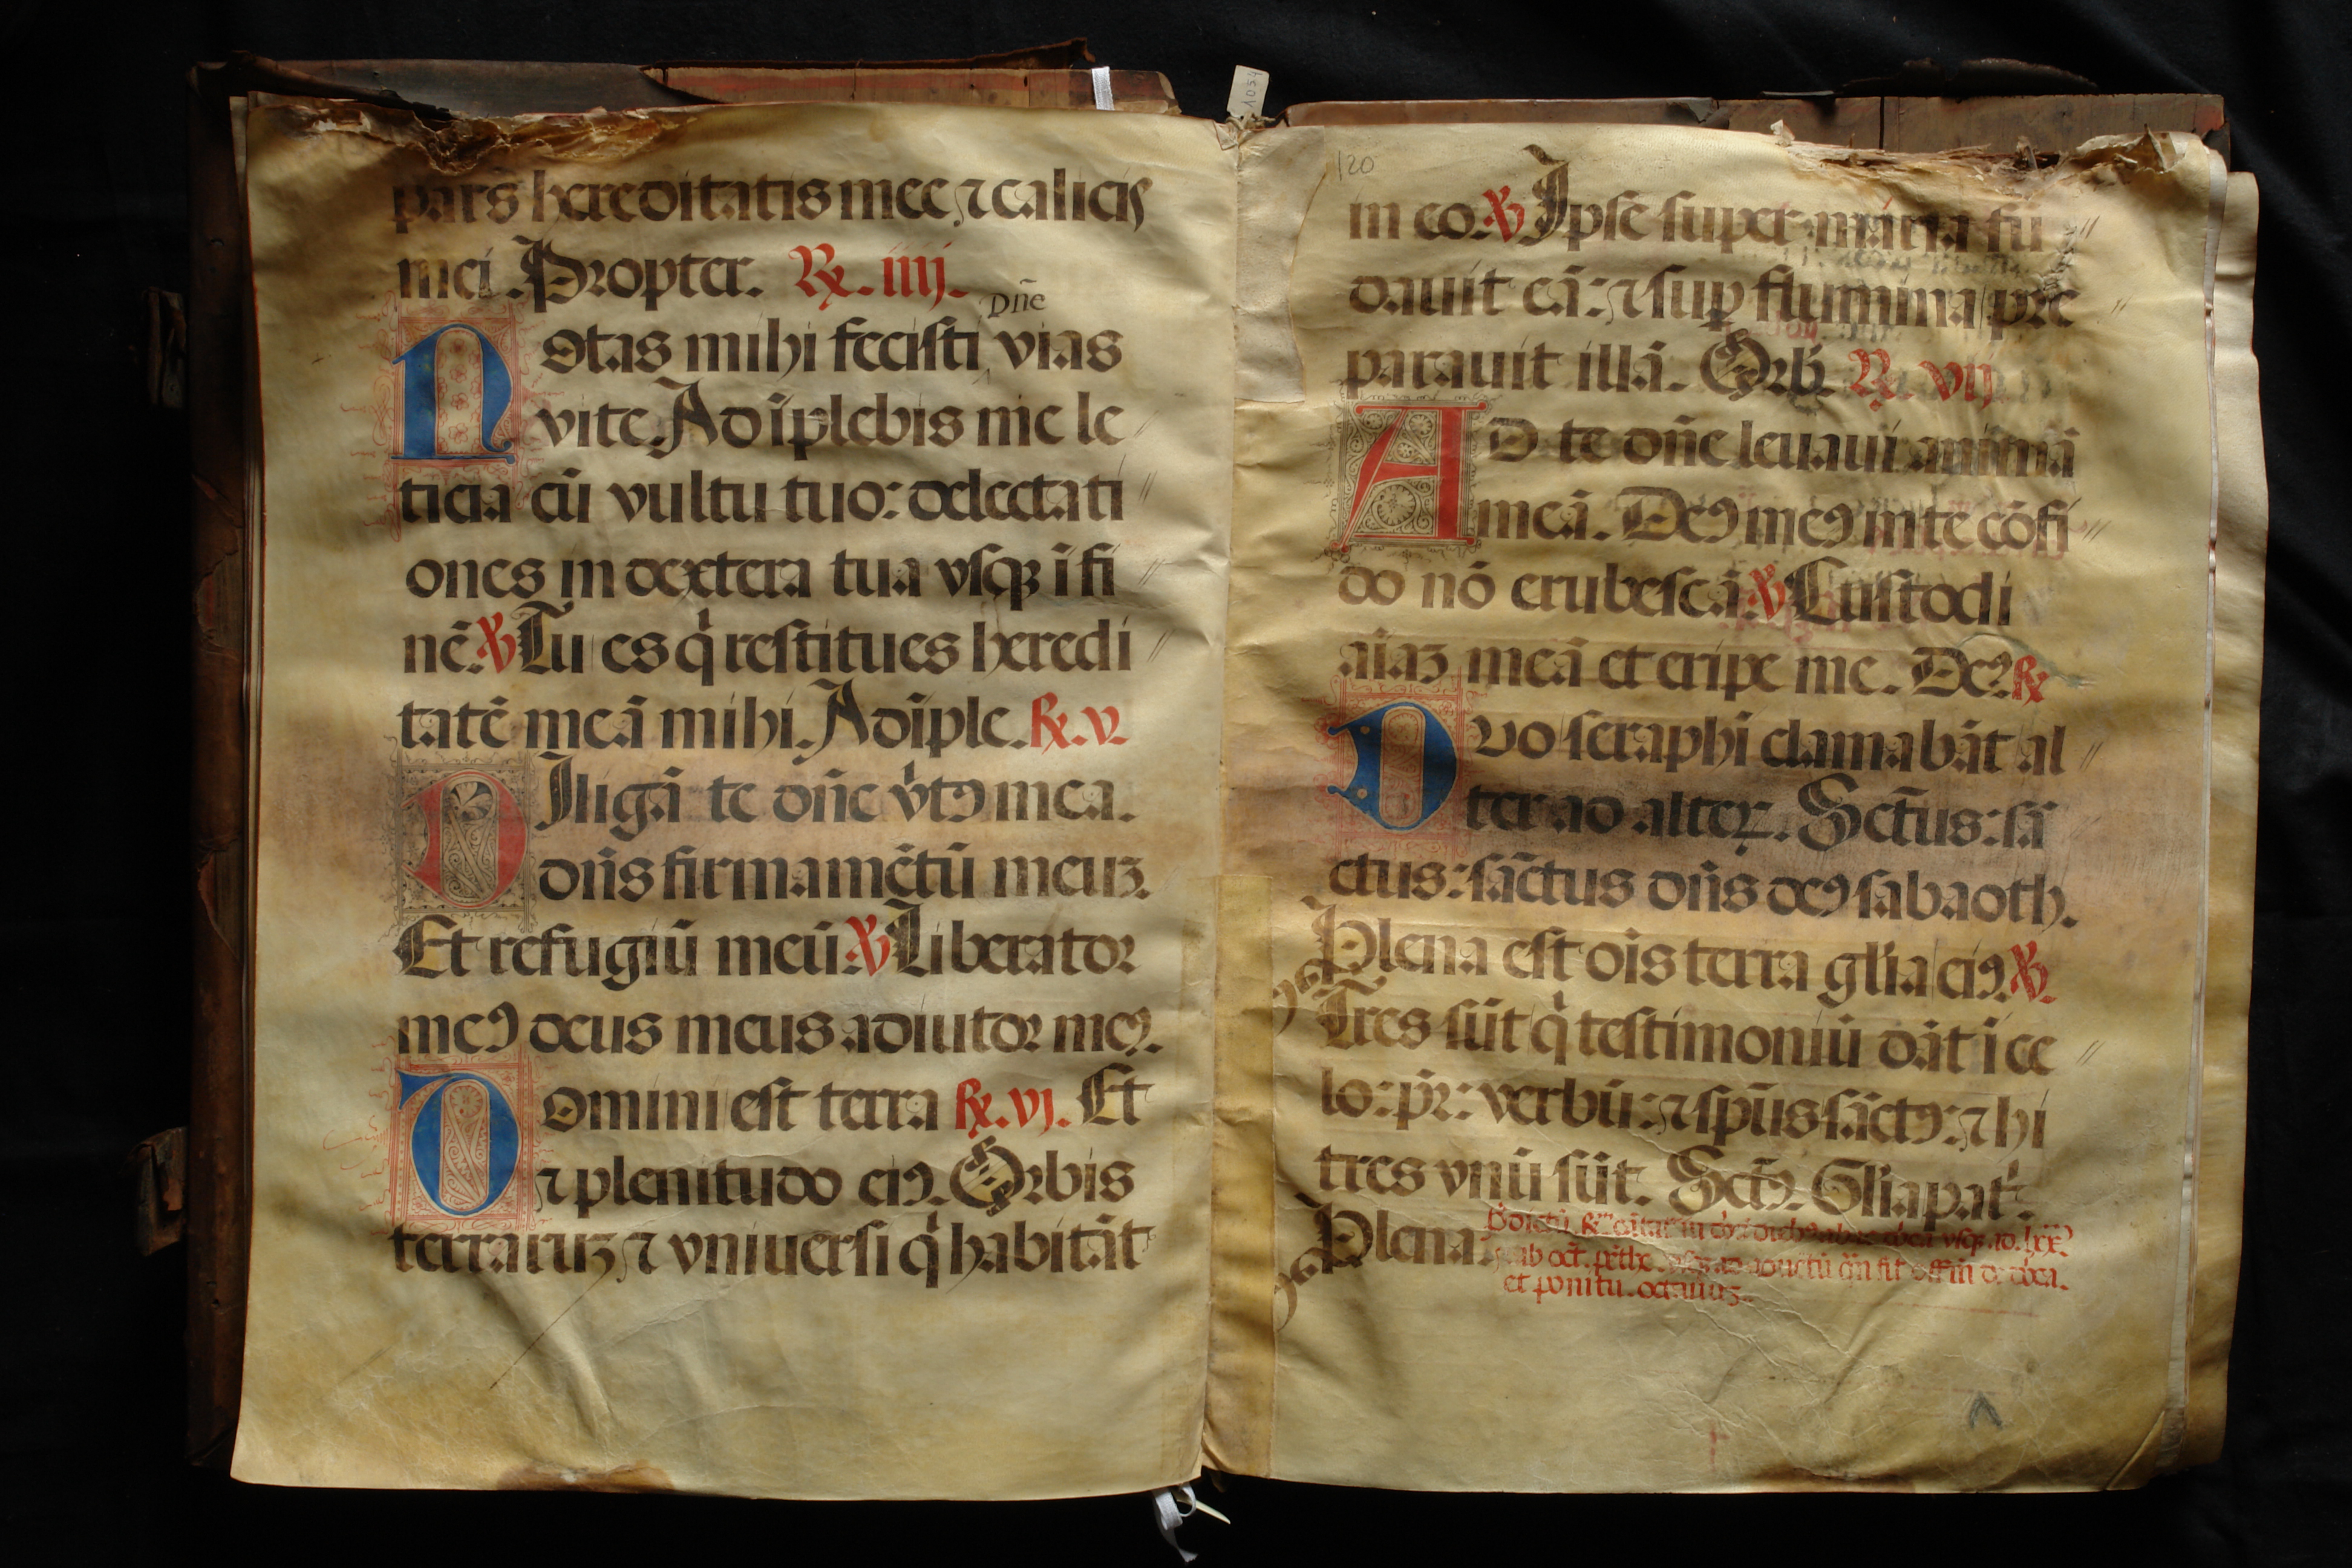 pars hereditatis mee ⁊ calicis
mei. Propter. ℟. iiij.
dn̄e
Notas mihi fecisti vias
vite. Adīplebis me le
ticia cū vultu tuo: delectati //
ones in dextera tua vsqꝫ ī fi //
nē. ℣ Tu es q̇ restitues heredi //
tatē meā mihi. Adīple. ℟. v.
Diligā te dn̄e v̇tꝰ mea.
dn̄s firmamētū meuꝫ.
Et refugiū meū. ℣ Liberator
meꝰ deus meus adiutor meꝰ.
Domini est terra ℟. vj. Et
⁊ plenitudo eiꝰ. Orbis
terraruꝫ ⁊ vniuersi q̇ habitāt
1054
120
in eo. ℣ Ipse super maria fū //
dauit eā: ⁊ suꝑ flumina pre //
parauit illā. Orb. ℟. vij
AD te dn̄e leuaui animā
meā. Deꝰ meꝰ in te cōfi //
do nō erubescā. ℣ Custodi
aīaꝫ meā et eripe me. Deꝰ. ℟
Duo seraphī clamabāt al //
ter ad alteꝝ. Sctūs: sā
ctus: sāctus dn̄s deꝰ sabaoth.
Plena est oīs terra glīa eiꝰ. ℣.
Tres sūt q̇ testimoniū dāt ī ce //
lo: pr̄: verbū: ⁊ spūs sāctꝰ: ⁊ hi
tres vnū sūt. Sctꝰ. Glīa pat̄.
Plena.
et ponitu. octauuꝫ.